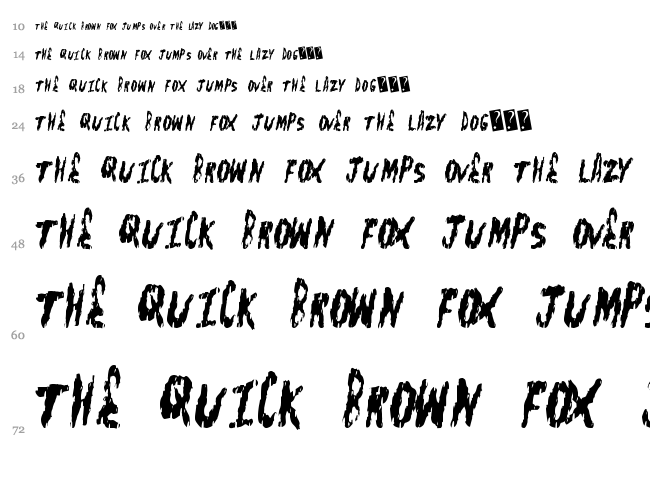 10 THE QUICK BROWN FOX JUMPS OVER THE LAZY DOG
14 THE QUICK BROWN FOX JUMPS OVER THE LAZY DOG
18 THE QUICK BROWN FOX JUMPS OVER THE LAZY DOG
24 THE QUICK BROWN FOX JUMPS OVER THE LAZY DOG
36 THE QUICK BROWN FOX JUMPS OVER THE LAZY
48 THE QUICK BROWN FOX JUMPS OVER
60 THE QUICK BROWN FOX JUMPS
72 THE QUICK BROWN FOX